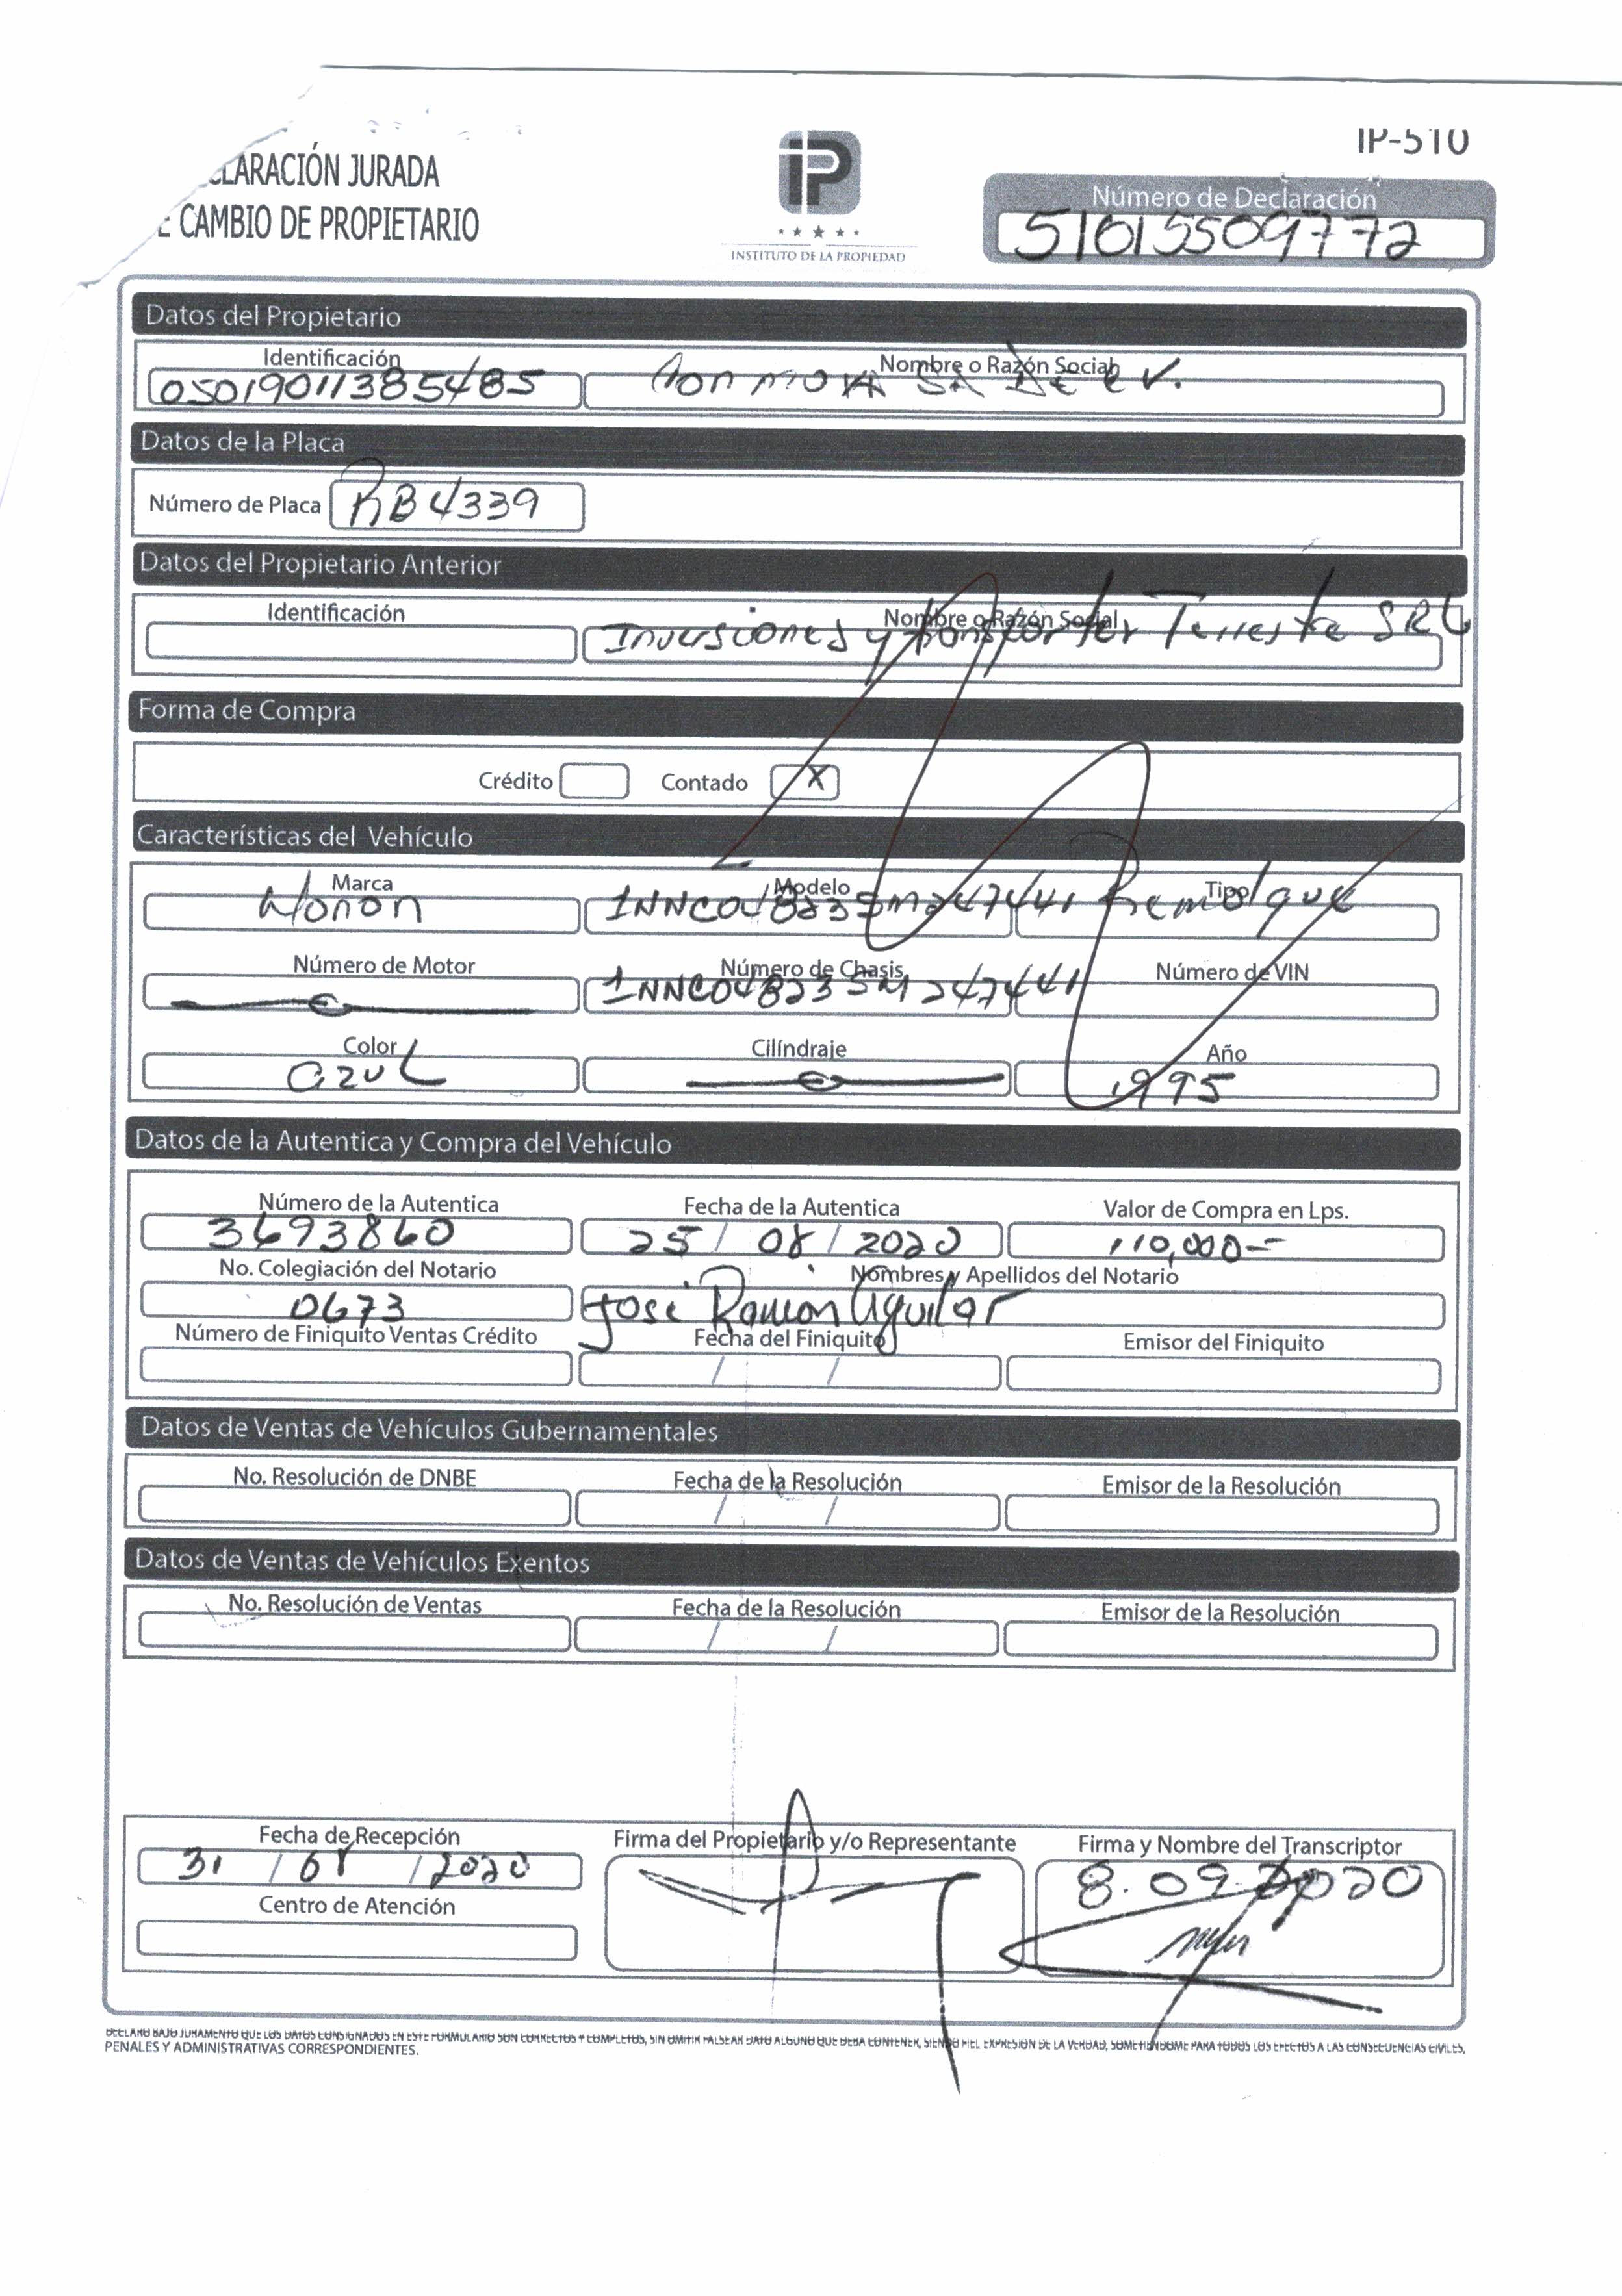 IP-510
LARACIÓN JURADA
E CAMBIO DE PROPIETARIO
IP
INSTITUTO DE LA PROPIEDAD
Número de Declaración
51015509772
Datos del Propietario
Identificación Nombre o Razón Social
05019011385485 SA DE CV.
Datos de la Placa
Número de Placa RB4339
Datos del Propietario Anterior
Identificación Nombre o Razón Social
Inversiones y Terrestre SRL
Forma de Compra
Crédito Contado X
Características del Vehículo
Marca Modelo Tipo
Monon 1NNC04823SM247441 Remolque
Número de Motor Número de Chasis Número de VIN
1NNC04823SM247441
Color Cilíndraje Año
azul 1995
Datos de la Autentica y Compra del Vehículo
Número de la Autentica Fecha de la Autentica Valor de Compra en Lps.
3693860 25 / 08 / 2020 110,000-
No. Colegiación del Notario Nombres y Apellidos del Notario
0673 José Ramón Aguilar
Número de Finiquito Ventas Crédito Fecha del Finiquito Emisor del Finiquito
/ /
Datos de Ventas de Vehículos Gubernamentales
No. Resolución de DNBE Fecha de la Resolución Emisor de la Resolución
/ /
Datos de Ventas de Vehículos Exentos
No. Resolución de Ventas Fecha de la Resolución Emisor de la Resolución
/ /
Fecha de Recepción Firma del Propietario y/o Representante Firma y Nombre del Transcriptor
31 / 08 / 2020 8.09.2020
Centro de Atención
DECLARO BAJO JURAMENTO QUE LOS DATOS CONSIGNADOS EN ESTE FORMULARIO SON CORRECTOS Y COMPLETOS, SIN OMITIR FALSEAR DATO ALGUNO QUE DEBA CONTENER, SIENDO FIEL EXPRESION DE LA VERDAD, SOMETIENDOME PARA TODOS LOS EFECTOS A LAS CONSECUENCIAS CIVILES,
PENALES Y ADMINISTRATIVAS CORRESPONDIENTES.